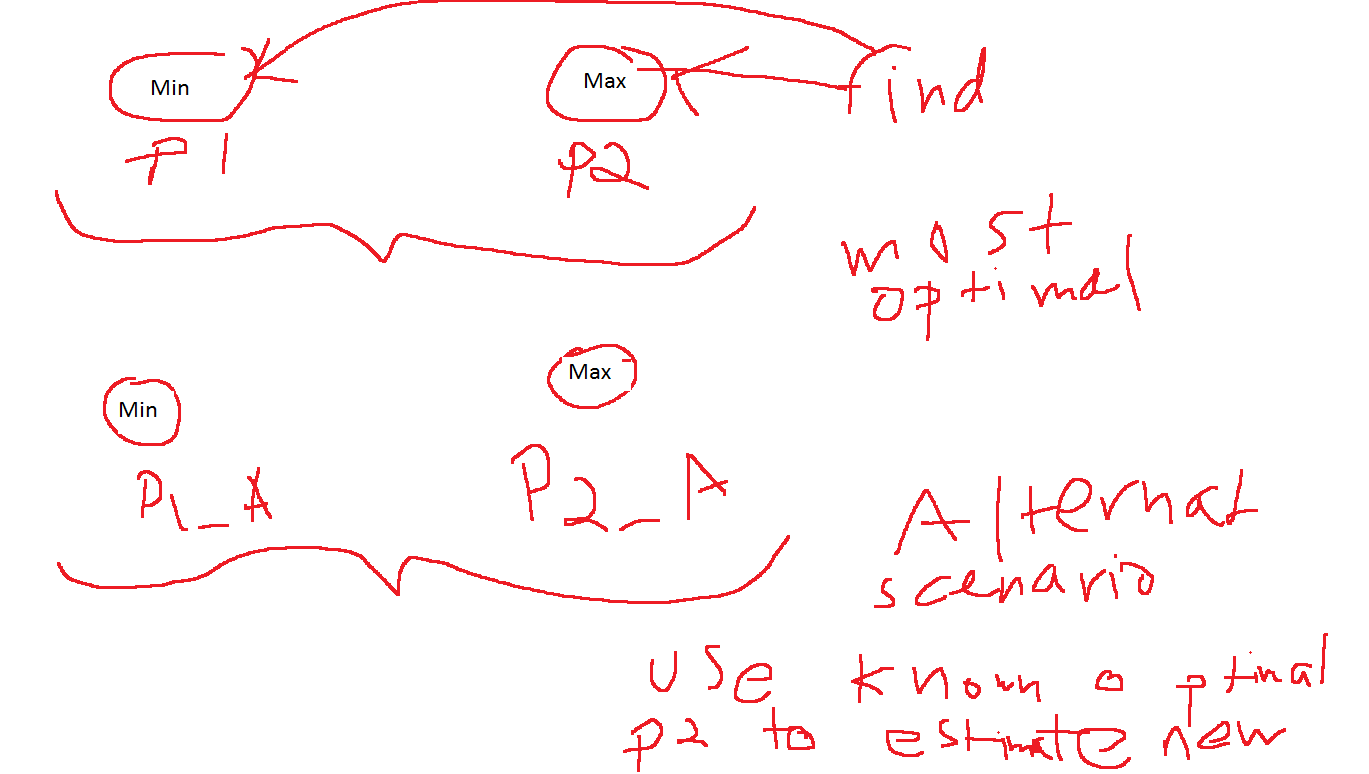 Min Max find
P1 P2
most
optimal
Min Max
P1_A P2_A
Alternat
scenario
use known optimal
p2 to estimate new